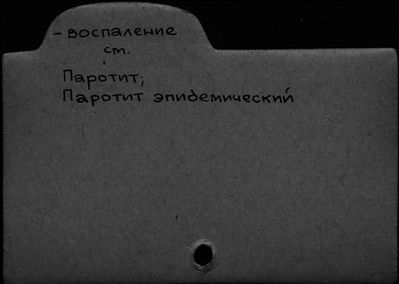 - воспаление
см.
Паротит;
Паротит эпидемический